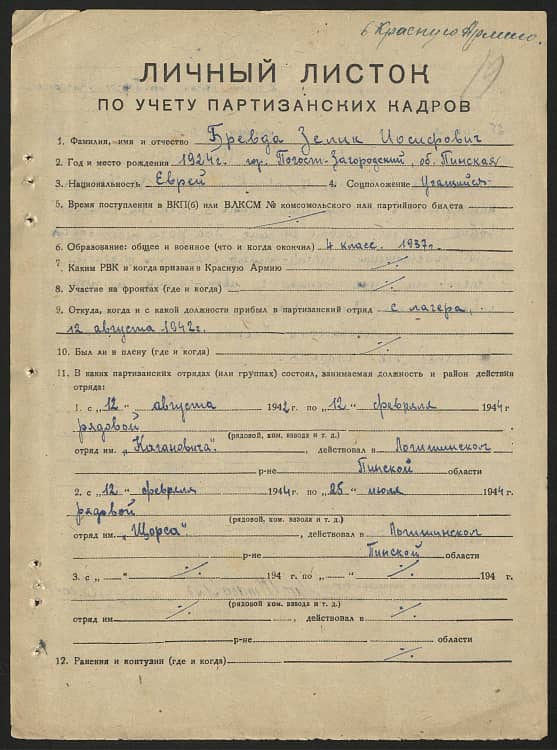 в Красную Армию.
19
ЛИЧНЫЙ ЛИСТОК
ПО УЧЕТУ ПАРТИЗАНСКИХ КАДРОВ
1. Фамилия, имя и отчество Бревда Зелик Иосифович
2. Год и место рождения 1924г. гор. Погост-Загородский, об. Пинская
3. Национальность Еврей 4. Соцположение Учащийся
5. Время поступления в ВКП(б) или ВЛКСМ № комсомольского или партийного билета
6. Образование: общее и военное (что и когда окончил) 4 класс. 1937г.
7. Каким РВК и когда призван в Красную Армию
8. Участие на фронтах (где и когда)
9. Откуда, когда и с какой должности прибыл в партизанский отряд с лагера,
12 августа 1942г.
10. Был ли в плену (где и когда)
11. В каких партизанских отрядах (или группах) состоял, занимаемая должность и район действия
отряда:
1. с „12" августа 1942 г. по „12" февраля 1944 г
рядовой
(рядовой, ком. взвода и т. д.)
отряд им. „Кагановича", действовал в Логишинском
р-не Пинской области
2. с „12" февраля 1944 г. по „25" июля 1944 г.
рядовой
(рядовой, ком. взвода и т. д.)
отряд им. „Щорса", действовал в Логишинском
р-не Пинской области
3. с „ " 194 г. по „ " 194 г.
(рядовой ком. взвода и т. д.)
отряд им , действовал в
р-не области
12. Ранения и контузии (где и когда)